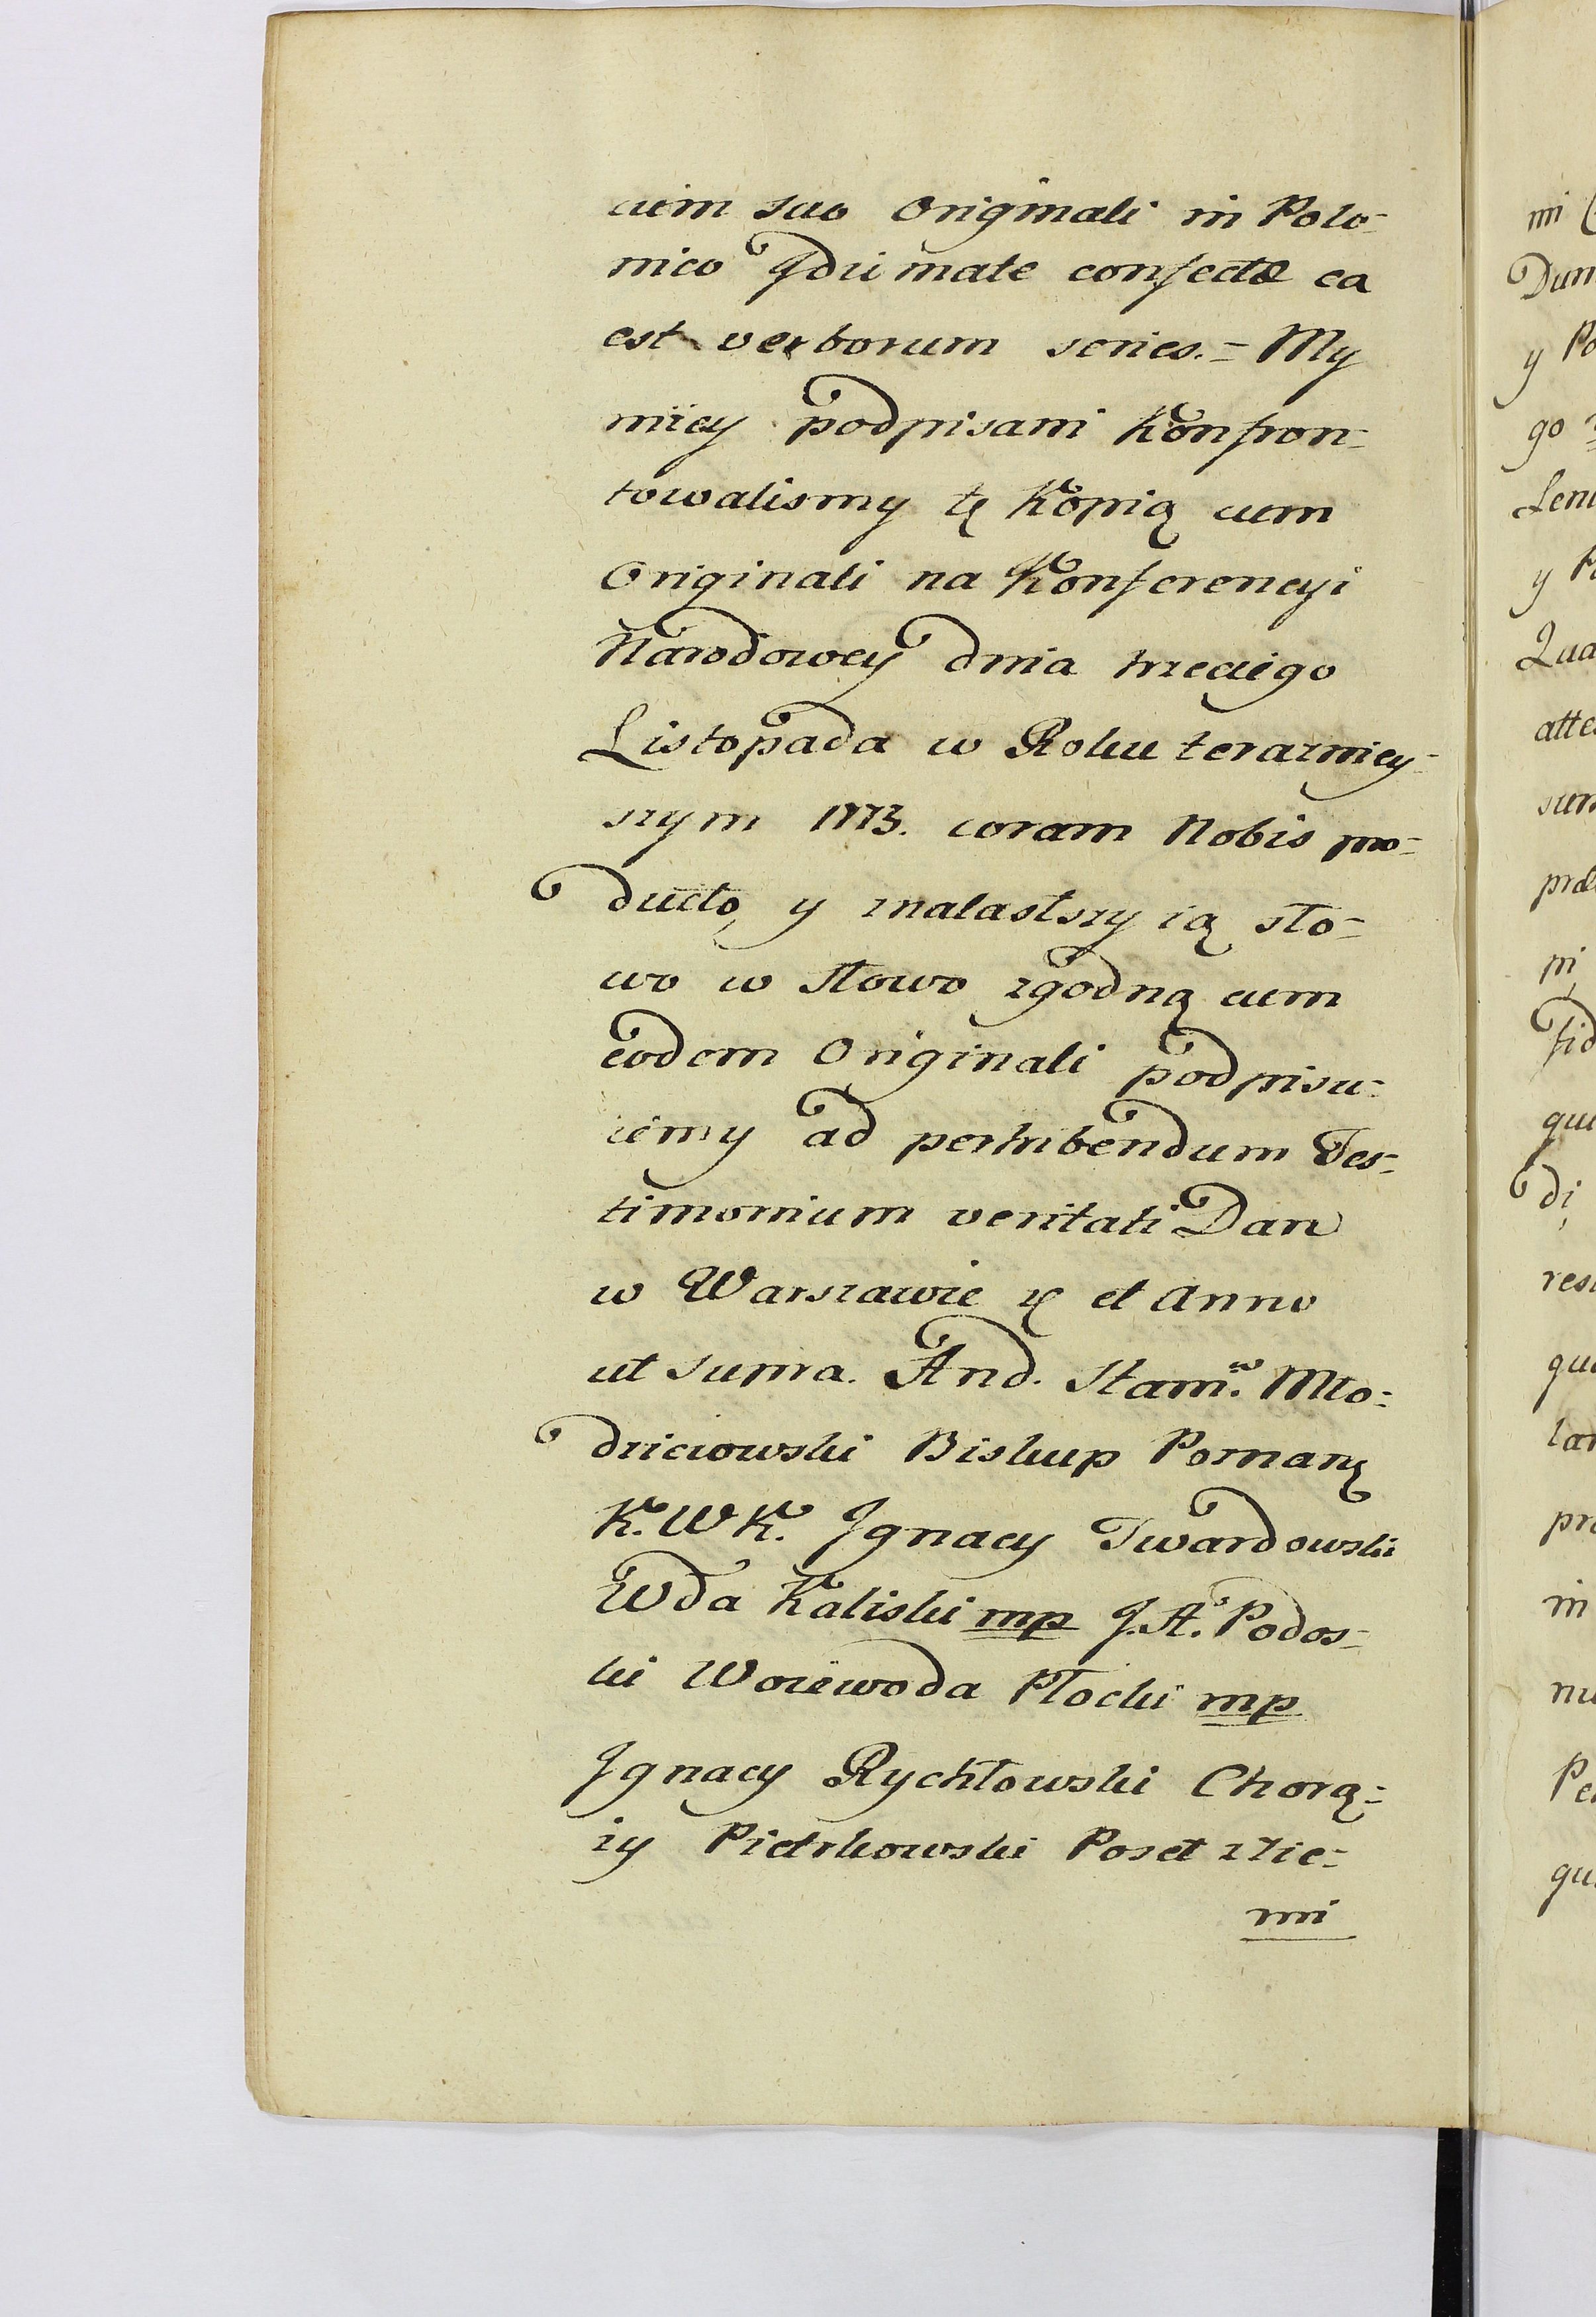 cum suo Originali in Polo=
nico Jdiimate confectæ ea
est verborum series.= My
niżey podpisani Konfron=
towalismy tę Kopią cum
Originali na Konferencyi
Narodowey dnia trzeciego
Listopada w Roku terazniey=
szym 1773. coram Nobis pro=
ducto, y znalastszy ią sło=
wo w słowo zgodną cum
eodem Originali podpisu=
iemy ad perhibendum Tes=
timonium veritati Dan
w Warszawie et Anno
ut supra. And. Stanis. Mło=
dzieiowski Biskup Poznań
K. W K. Jgnacy Twardowski
Wda Kaliski mp J. A. Podos=
ki Woiewoda Płocki mp
Jgnacy Rychłowski Chorą=
ży Pietrkowski Poset Zie=
mi
mi
Dum
y Po
go
Leni
y P
Qua
attes
sum
præ
pi,
fid
qui
di,
res
qu
lar
pr
in
nu
Pe
qu